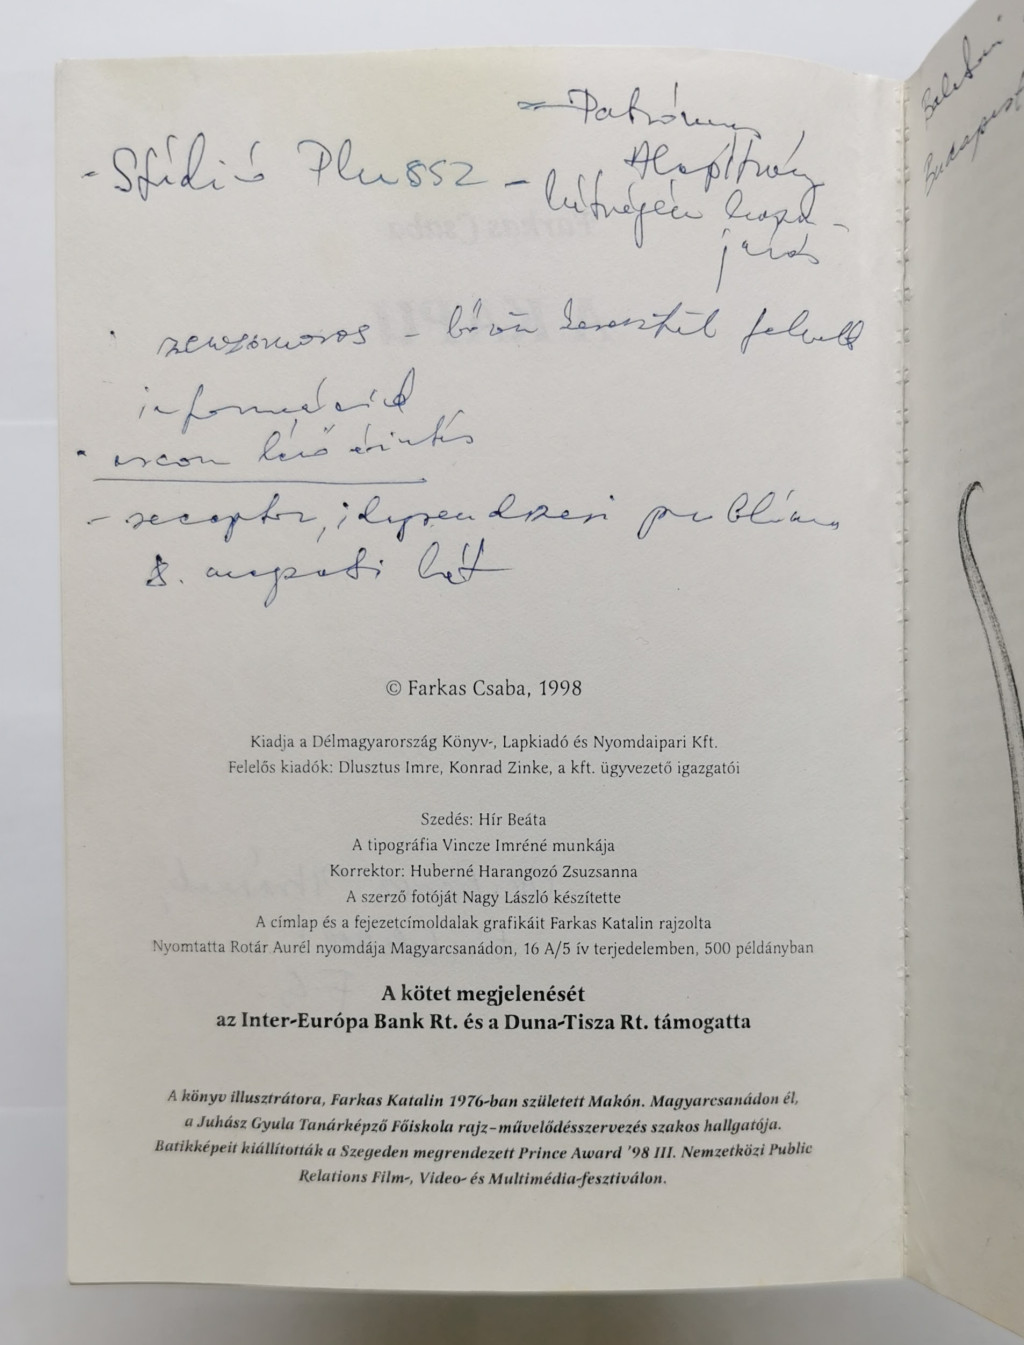 = Patrónus
- Stúdió Plussz - Alapítvány
hétvégén haza-
járás
• szenzomoros - bőrön keresztül felvett
információ
• arcon lévő érintés
- receptor, idegrendszeri probléma
8. magzati hét
© Farkas Csaba, 1998
Kiadja a Délmagyarország Könyv-, Lapkiadó és Nyomdaipari Kft.
Felelős kiadók: Dlusztus Imre, Konrad Zinke, a kft. ügyvezető igazgatói
Szedés: Hír Beáta
A tipográfia Vincze Imréné munkája
Korrektor: Huberné Harangozó Zsuzsanna
A szerző fotóját Nagy László készítette
A címlap és a fejezetcímoldalak grafikáit Farkas Katalin rajzolta
Nyomtatta Rotár Aurél nyomdája Magyarcsanádon, 16 A/5 ív terjedelemben, 500 példányban
A kötet megjelenését
az Inter-Európa Bank Rt. és a Duna-Tisza Rt. támogatta
A könyv illusztrátora, Farkas Katalin 1976-ban született Makón. Magyarcsanádon él,
a Juhász Gyula Tanárképző Főiskola rajz-művelődésszervezés szakos hallgatója.
Batikképeit kiállították a Szegeden megrendezett Prince Award '98 III. Nemzetközi Public
Relations Film-, Video- és Multimédia-fesztiválon.
Budapest